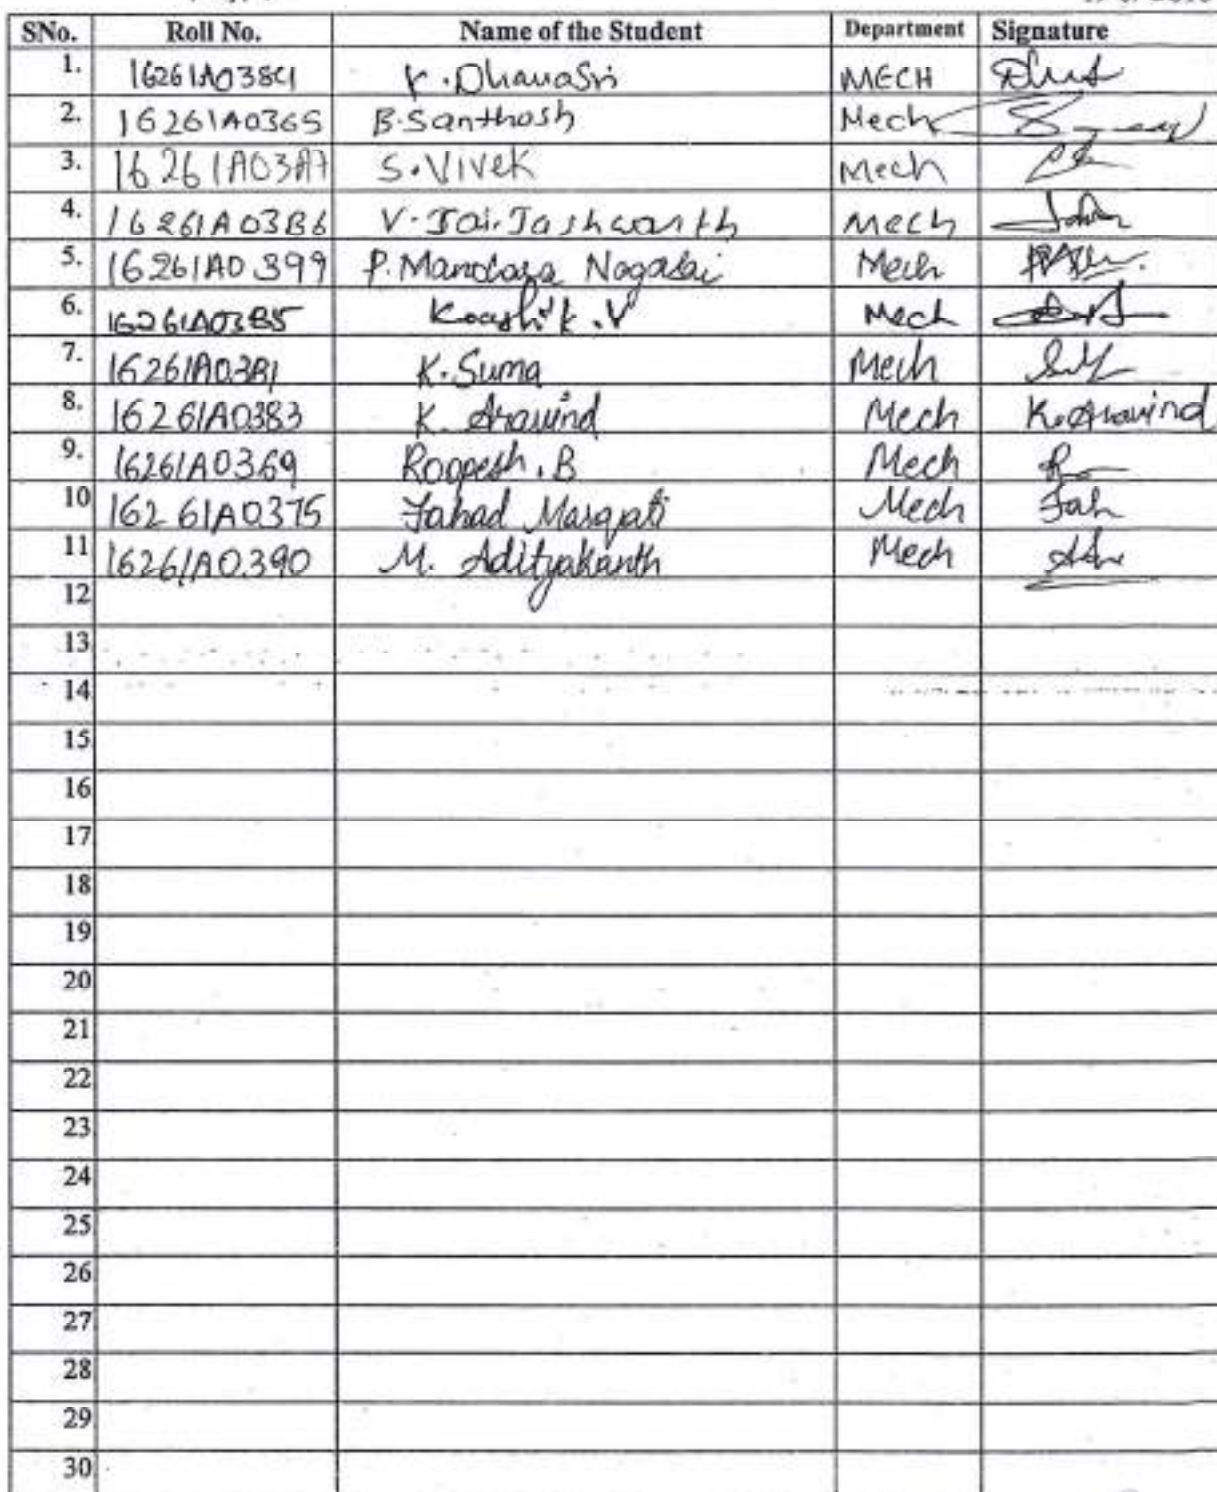 SNo. Roll No. Name of the Student Department Signature
1. 16261A0384 K. DhanaSri MECH
2. 16261A0365 B. Santhosh Mech
3. 16261A03A7 S. Vivek Mech
4. 16261A03B6 V. Jai. Jashwanth Mech
5. 16261A0399 P. Mandara Nagasai Mech
6. 16261A03B5 Koushik. V Mech
7. 16261A0381 K. Suma Mech
8. 16261A0383 K. Aravind Mech K. Aravind
9. 16261A0369 Roopesh. B Mech
10 16261A0375 Fahad Margati Mech Fah
11 16261A0390 M. Adityakanth Mech
12
13
14
15
16
17
18
19
20
21
22
23
24
25
26
27
28
29
30